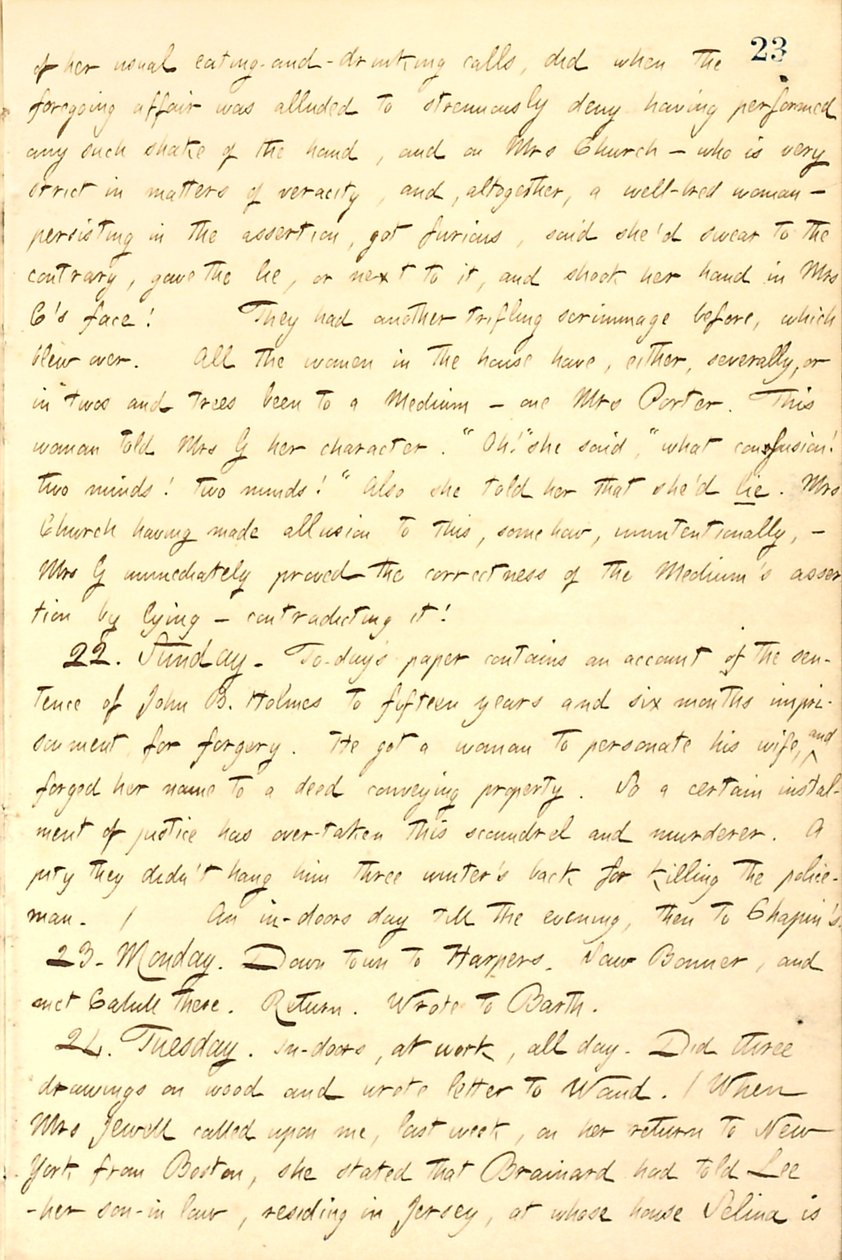 23
of her usual eating-and-drinking calls, did when the
foregoing affair was alluded to strenuously deny having performed
any such shake of the hand, and on Mrs Church — who is very
strict in matters of veracity, and, altogether, a well-bred woman —
persisting in the assertion, got furious, said she'd swear to the
contrary, gave the lie, or next to it, and shook her hand in Mrs
C's face! They had another trifling scrimmage before, which
blew over. All the women in the house have, either, severally, or
in twos and trees been to a Medium — one Mrs Porter. This
woman told Mrs G her character. "Oh!" she said, "what confusion!
two minds! two minds!" Also she told her that she'd lie. Mrs
Church having made allusion to this, somehow, unintentionally, —
Mrs G immediately proved the correctness of the Medium's asser
tion by lying — contradicting it!
22. Sunday. To-day's paper contains an account of the sen-
tence of John B. Holmes to fifteen years and six months impri-
sonment, for forgery. He got a woman to personate his wife, and
forged her name to a deed conveying property. So a certain instal-
ment of justice has over-taken this scoundrel and murderer. A
pity they didn't hang him three winter's back for killing the police-
man. / An in-doors day till the evening, then to Chapin's.
23. Monday. Down town to Harpers. Saw Bonner, and
met Cahill there. Return. Wrote to Barth.
24. Tuesday. In-doors, at work, all day. Did three
drawings on wood and wrote letter to Waud. / When
Mrs Jewell called upon me, last week, on her return to New
York from Boston, she stated that Brainard had told Lee
-her son-in law, residing in Jersey, at whose house Selina is